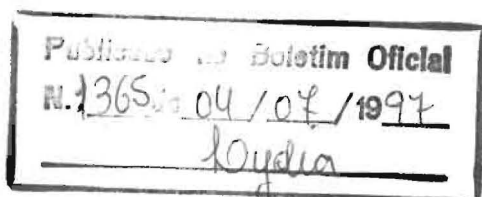 Publicado no Boletim Oficial
N. 1365 de 04 / 07 / 1997
Lydia